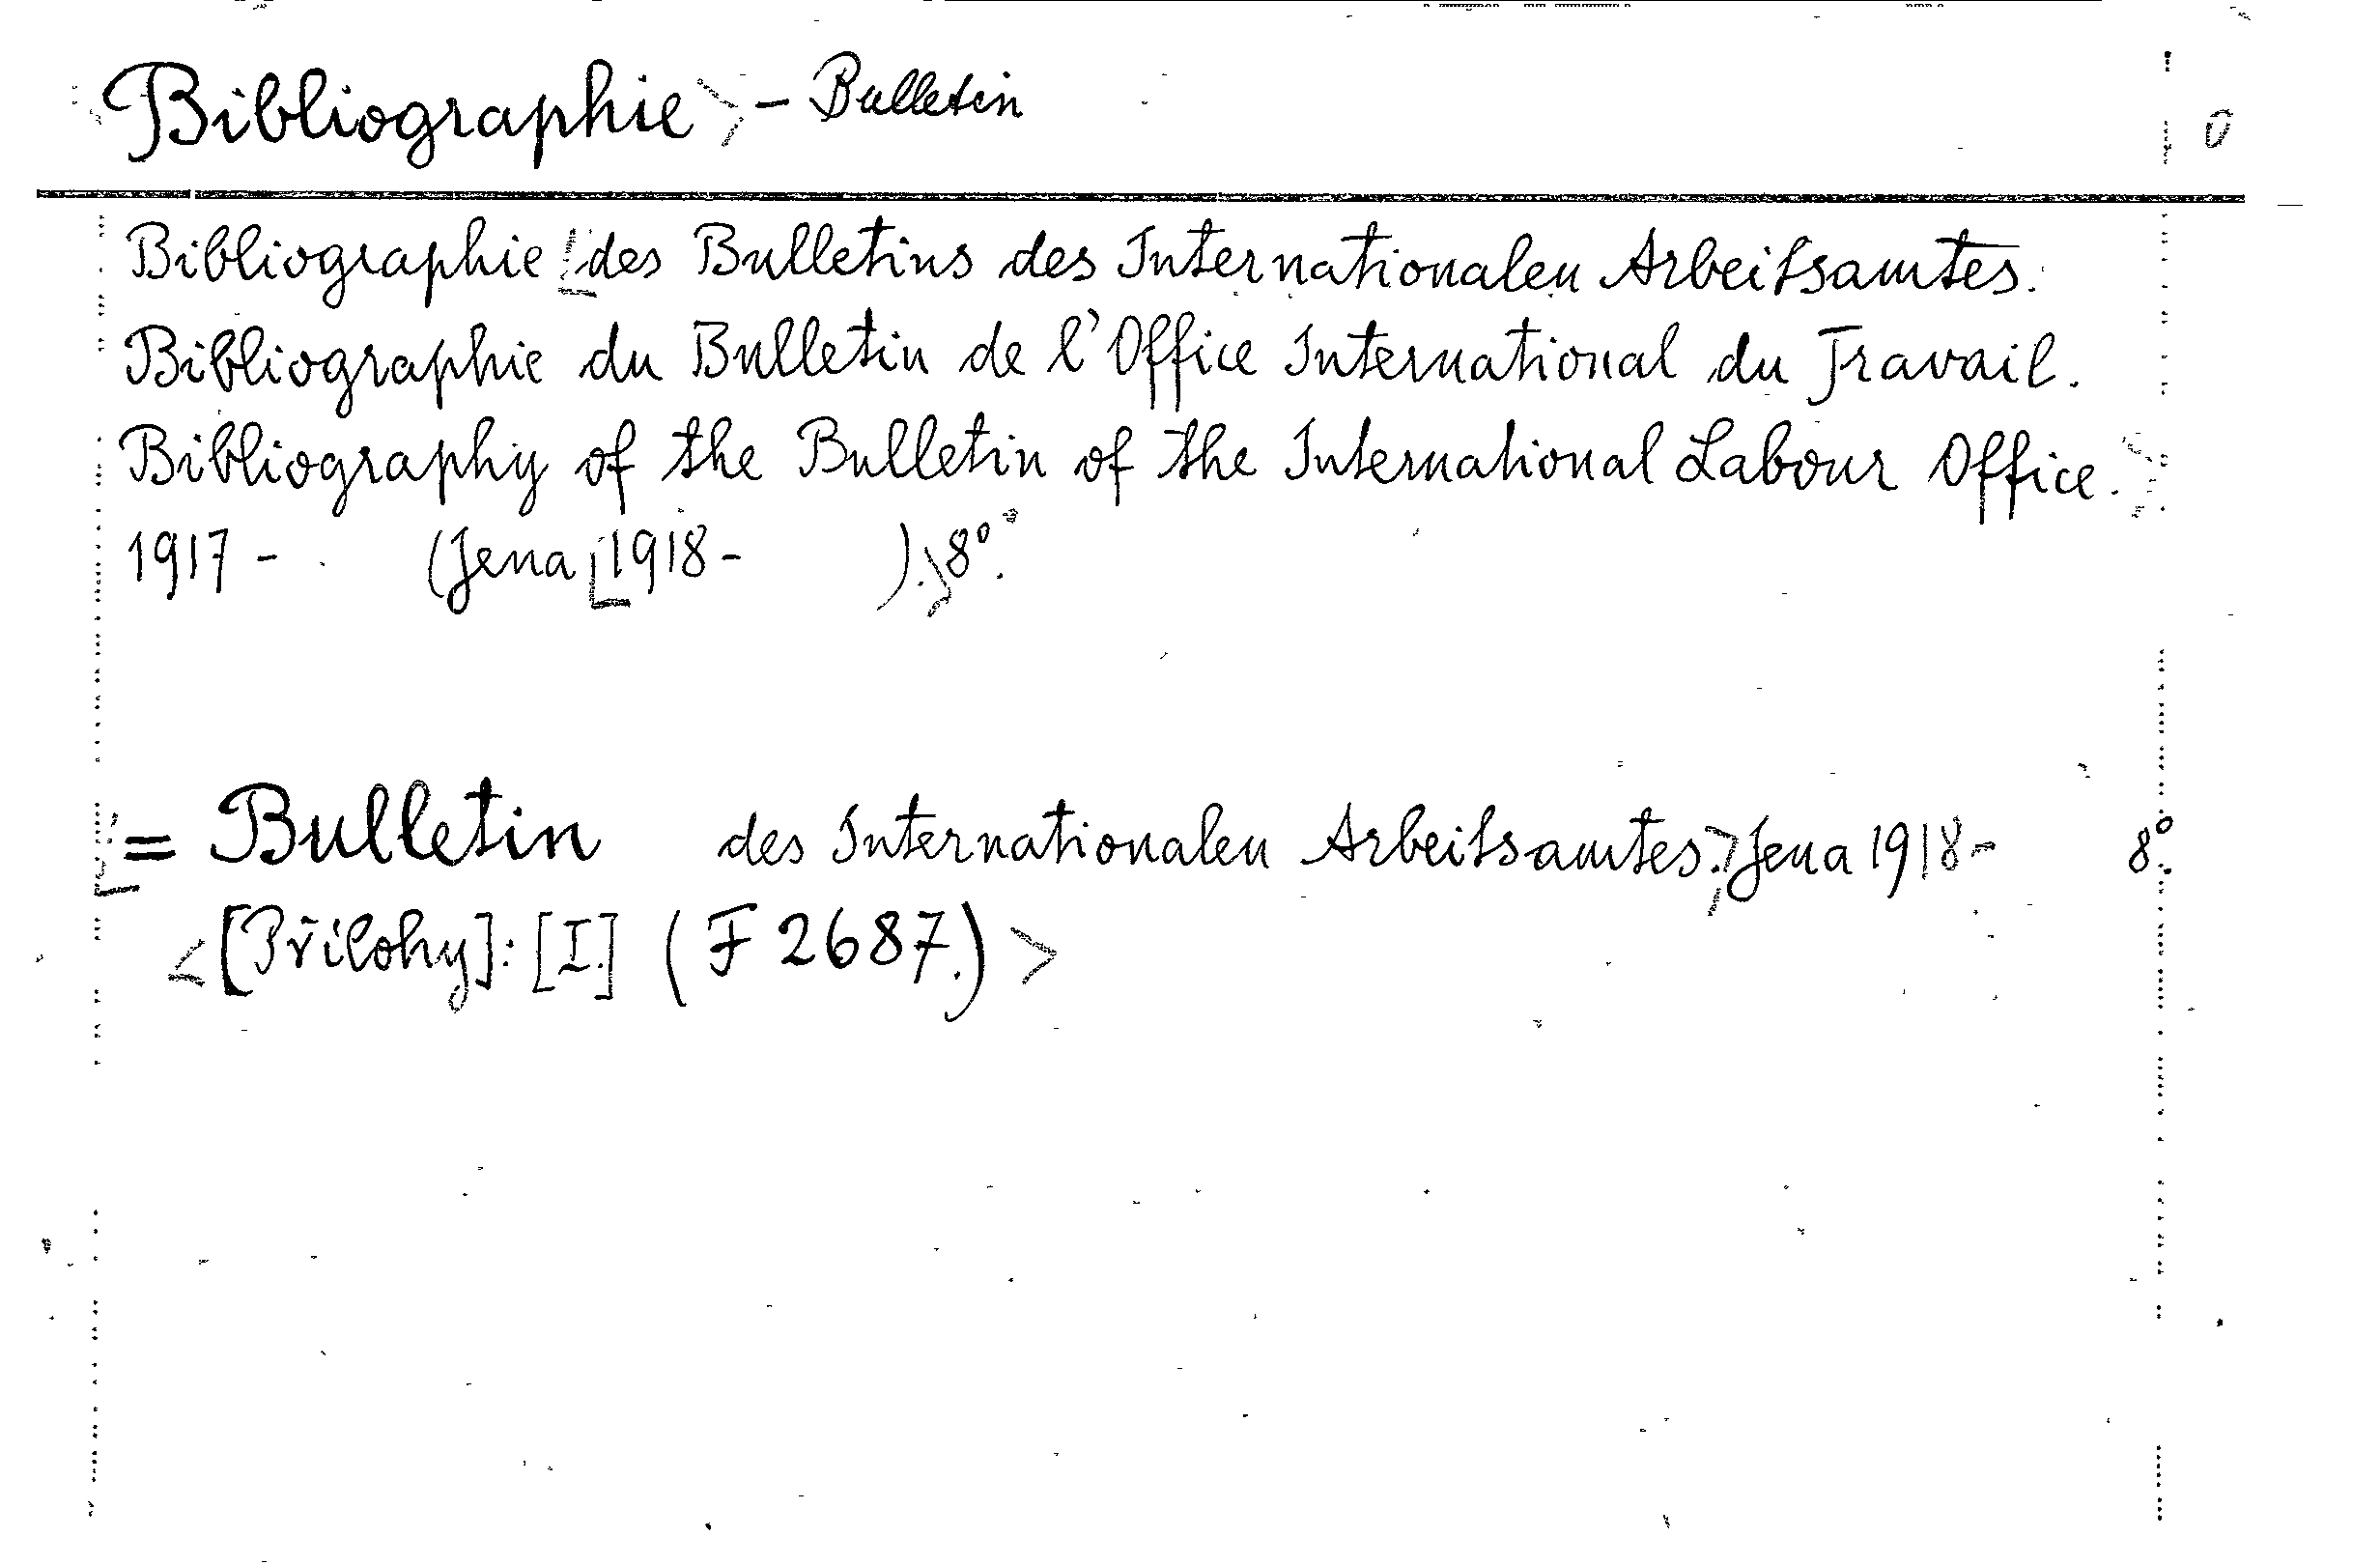 Bibliographie - Bulletin 0
Bibliographie des Bulletins des Internationalen Arbeitsamtes.
Bibliographie du Bulletin de l'Office International du Travail.
Bibliography of the Bulletin of the International Labour Office.
1917 - (Jena 1918 - ). 8°.
= Bulletin des Internationalen Arbeitsamtes. Jena 1918 - 8°.
<[Přílohy]: [I.] (F 2687.)>